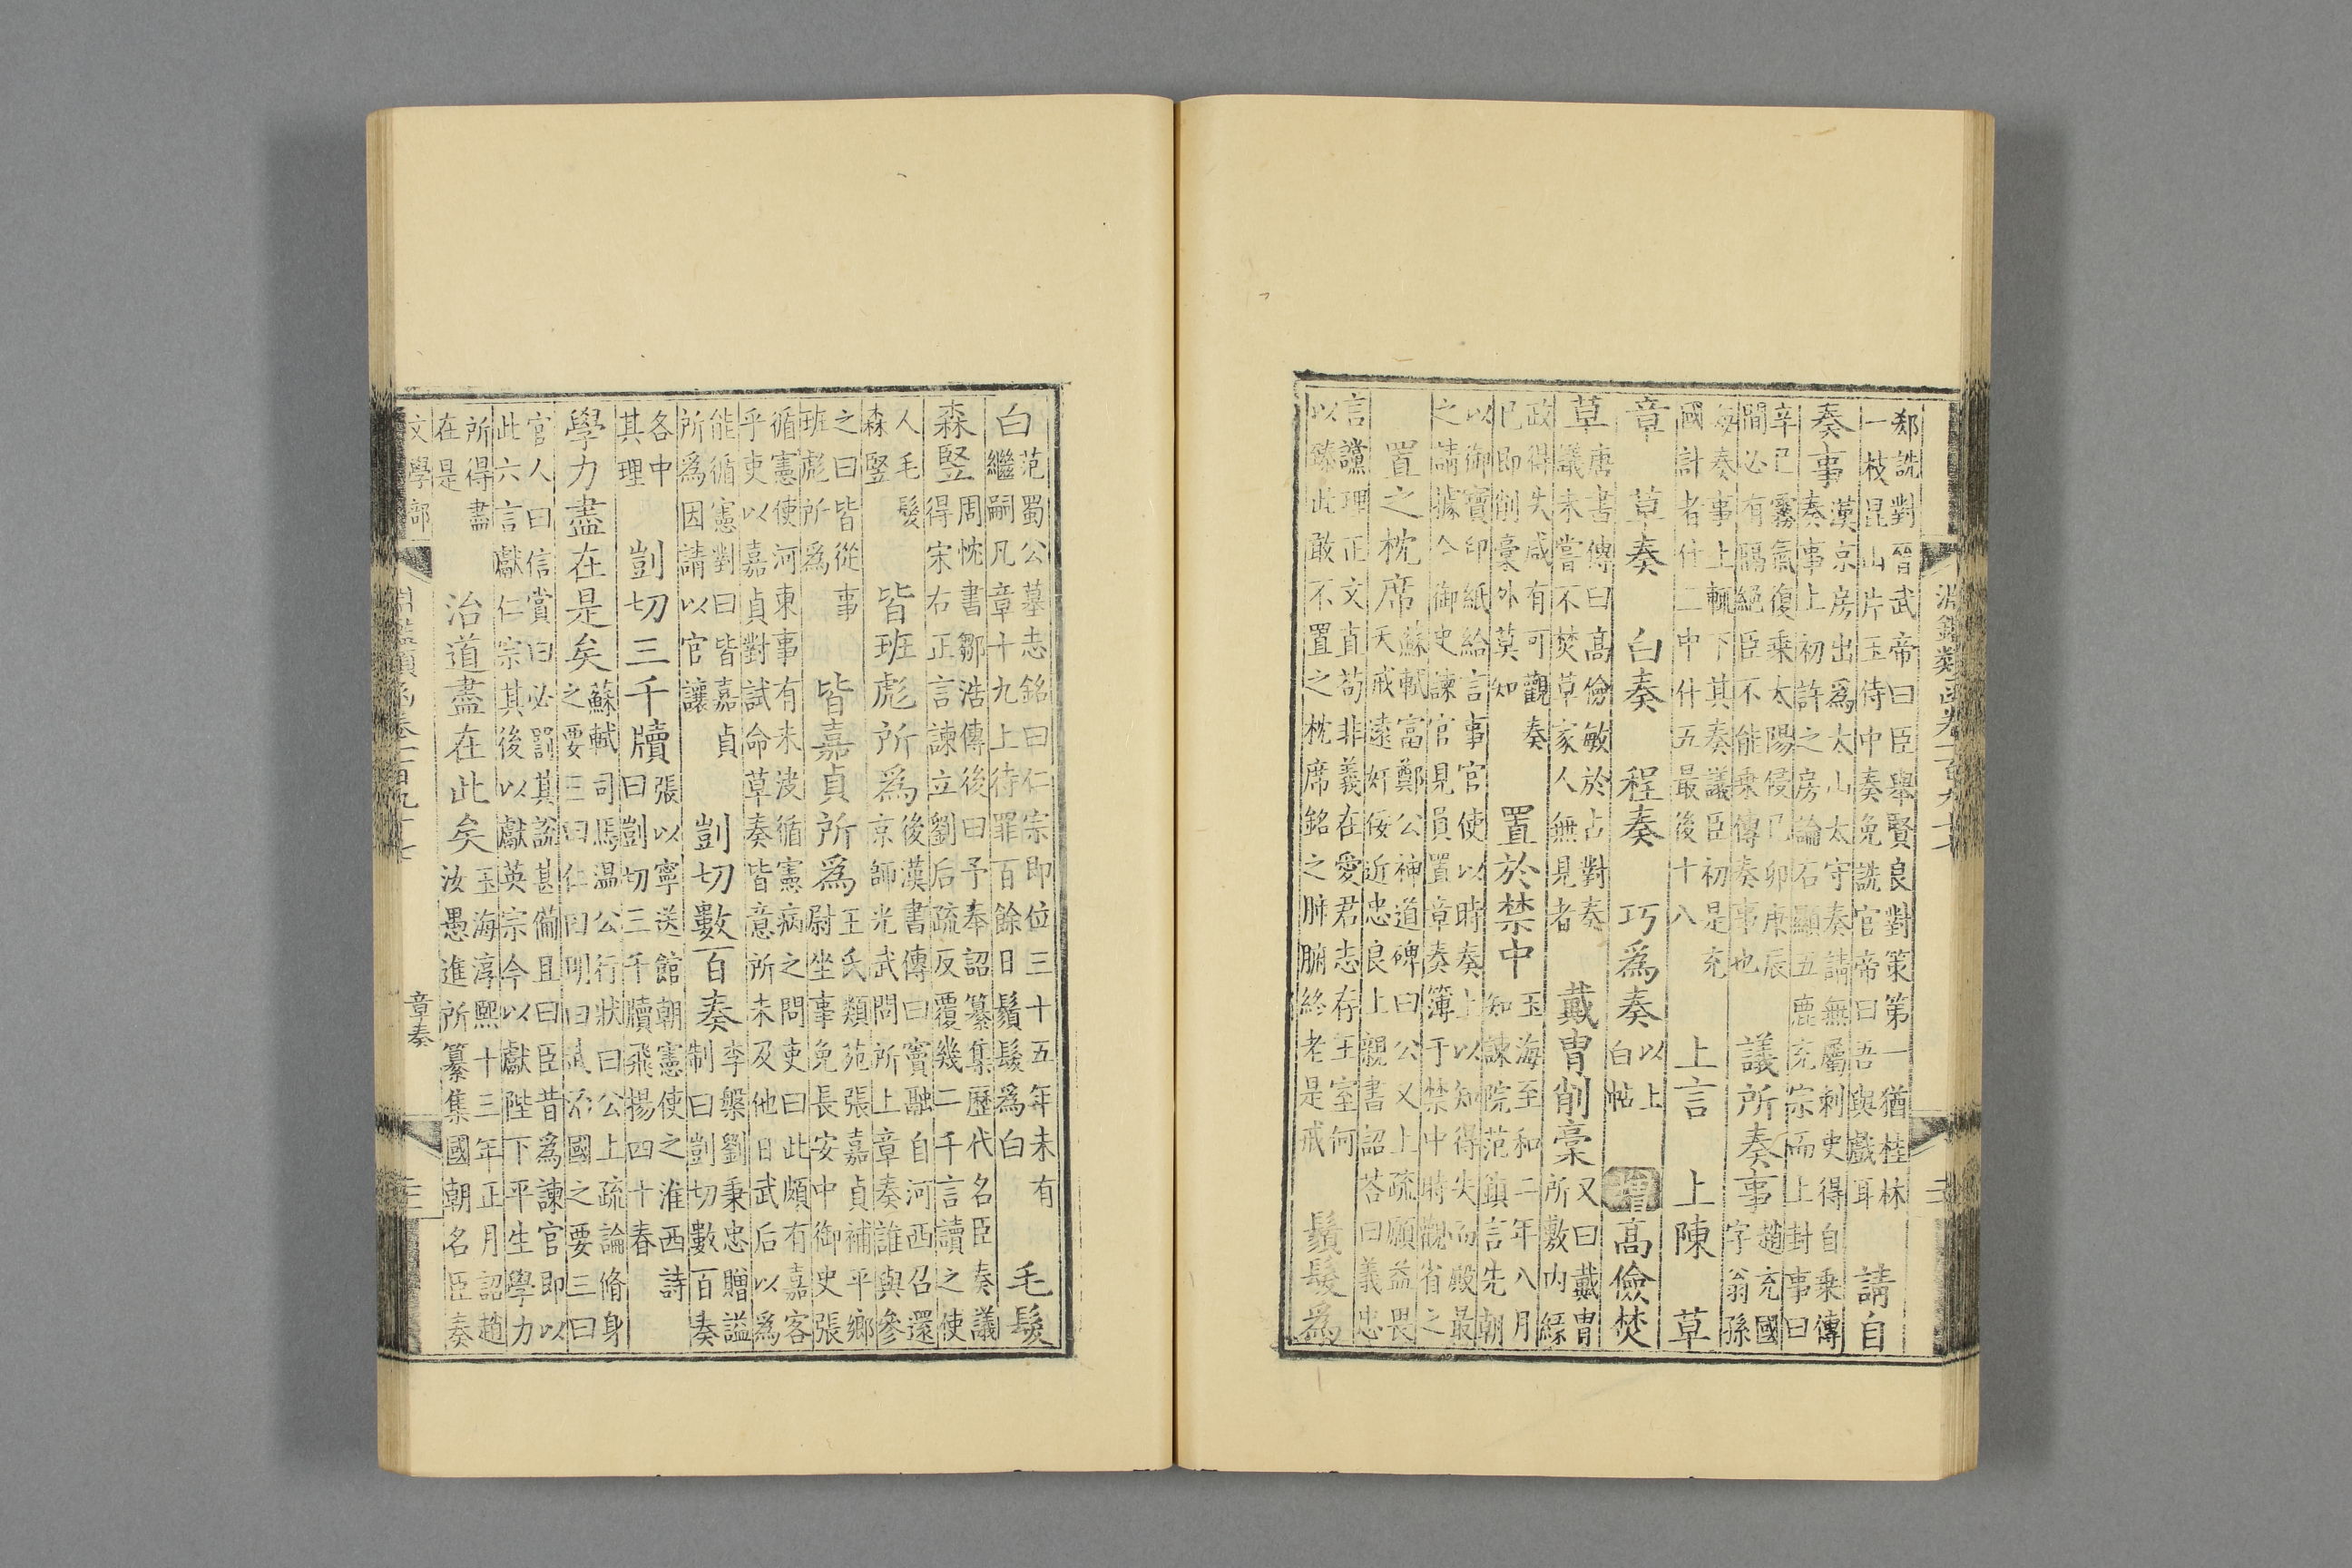 郄詵對晉武帝曰臣舉賢良對策第一猶桂林
一枝崑山片玉侍中奏免詵官帝曰吾與戲耳
請自
奏事
漢京房出爲太山太守奏請無屬刺史得自乘傳
奏事上初許之房論石顯五鹿充宗而上封事曰
辛巳霧氣復乘太陽侵巳卯庚辰
間必有隔絕臣不能乘傳奏事也
議所奏事
趙充國
字翁孫
每奏事上輒下其奏議臣初是充
國計者什二中什五最後十八
上言 上陳 草
章 草奏 白奏 程奏 巧爲奏
以上
白帖
增
高儉焚
草
唐書傳曰高儉敏於占對奏
議未嘗不焚草家人無見者
戴冑削槀
又曰戴冑
所敷内緣
政得失咸有可觀奏
已即削槀外莫知
置於禁中
玉海至和二年八月
知諫院范鎮言先朝
以御寶印紙給言事官使以時奏上以知得失而殿最
之請據令御史諫官見員置章奏簿于禁中時觀省之
置之枕席
蘇軾富鄭公神道碑曰公又上疏願益畏
天戒遠奸佞近忠良上親書詔答曰義忠
言讜理正文直苟非義在愛君志存王室何
以臻此敢不置之枕席銘之肺腑終老是戒
鬚髮爲
白
范蜀公墓志銘曰仁宗即位三十五年未有
繼嗣凡章十九上待罪百餘日鬚髮爲白
毛髮
森竪
周忱書鄒浩傳後曰予奉詔纂集歷代名臣奏議
得宋右正言諫立劉后疏反覆幾二千言讀之使
人毛髮
森竪
皆班彪所爲
後漢書傳曰竇融自河西召還
京師光武問所上章奏誰與參
之曰皆從事
班彪所爲
皆嘉貞所爲
王氏類苑張嘉貞補平鄉
尉坐事免長安中御史張
循憲使河東事有未決循憲病之問吏曰此頗有嘉客
乎吏以嘉貞對試命草奏皆意所未及他日武后以爲
能循憲對曰皆嘉貞
所爲因請以官讓
剴切數百奏
李槃劉秉忠贈謚
制曰剴切數百奏
各中
其理
剴切三千牘
張以寧送館朝憲使之淮西詩
曰剴切三千牘飛揚四十春
學力盡在是矣
蘇軾司馬温公行狀曰公上疏論脩身
之要三曰仁曰明曰武治國之要三曰
官人曰信賞曰必罰其說甚備且曰臣昔爲諫官即以
此六言獻仁宗其後以獻英宗今以獻陛下平生學力
所得盡
在是
治道盡在此矣
玉海淳熙十三年正月詔趙
汝愚進所纂集國朝名臣奏
文學部
章奏